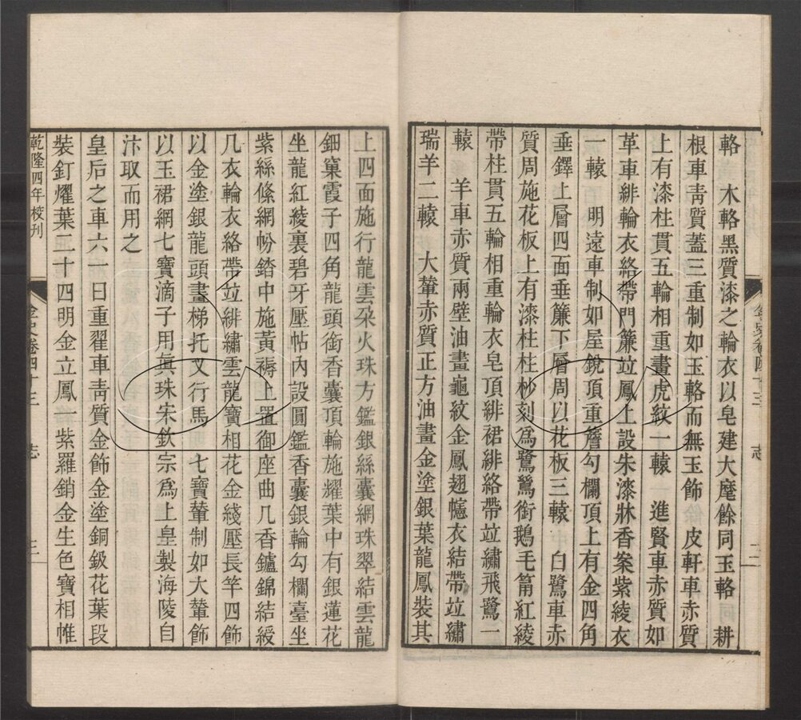 輅　木輅黑質漆之輪衣以皂建大麾餘同玉輅　耕
根車靑質蓋三重制如玉輅而無玉飾　皮軒車赤質
上有漆柱貫五輪相重畫虎紋一轅　進賢車赤質如
革車緋輪衣絡帶門簾竝鳳上設朱漆牀香案紫綾衣
一轅　明遠車制如屋銳頂重簷勾欄頂上有金四角
垂鐸上層四面垂簾下層周以花板三轅　白鷺車赤
質周施花板上有漆柱柱杪刻爲鷺鷥銜鵝毛筩紅綾
帶柱貫五輪相重輪衣皂頂緋裙緋絡帶竝繡飛鷺一
轅　羊車赤質兩壁油畫龜紋金鳳翅幰衣結帶竝繡
瑞羊二轅　大輦赤質正方油畫金塗銀葉龍鳳裝其
金史卷四十三　志　二
上四面施行龍雲朶火珠方鑑銀絲囊網珠翠結雲龍
鈿窠霞子四角龍頭銜香囊頂輪施耀葉中有銀蓮花
坐龍紅綾裏碧牙壓帖內設圓鑑香囊銀輪勾欄臺坐
紫絲絛網帉錔中施黃褥上置御座曲几香鑪錦結綬
几衣輪衣絡帶竝緋繡雲龍寶相花金綫壓長竿四飾
以金塗銀龍頭畫梯托叉行馬　七寶輦制如大輦飾
以玉裙網七寶滴子用眞珠宋欽宗爲上皇製海陵自
汴取而用之
皇后之車六一曰重翟車靑質金飾金塗銅鈒花葉段
裝釘耀葉二十四明金立鳳一紫羅銷金生色寶相帷
乾隆四年校刊
金史卷四十三　志　三